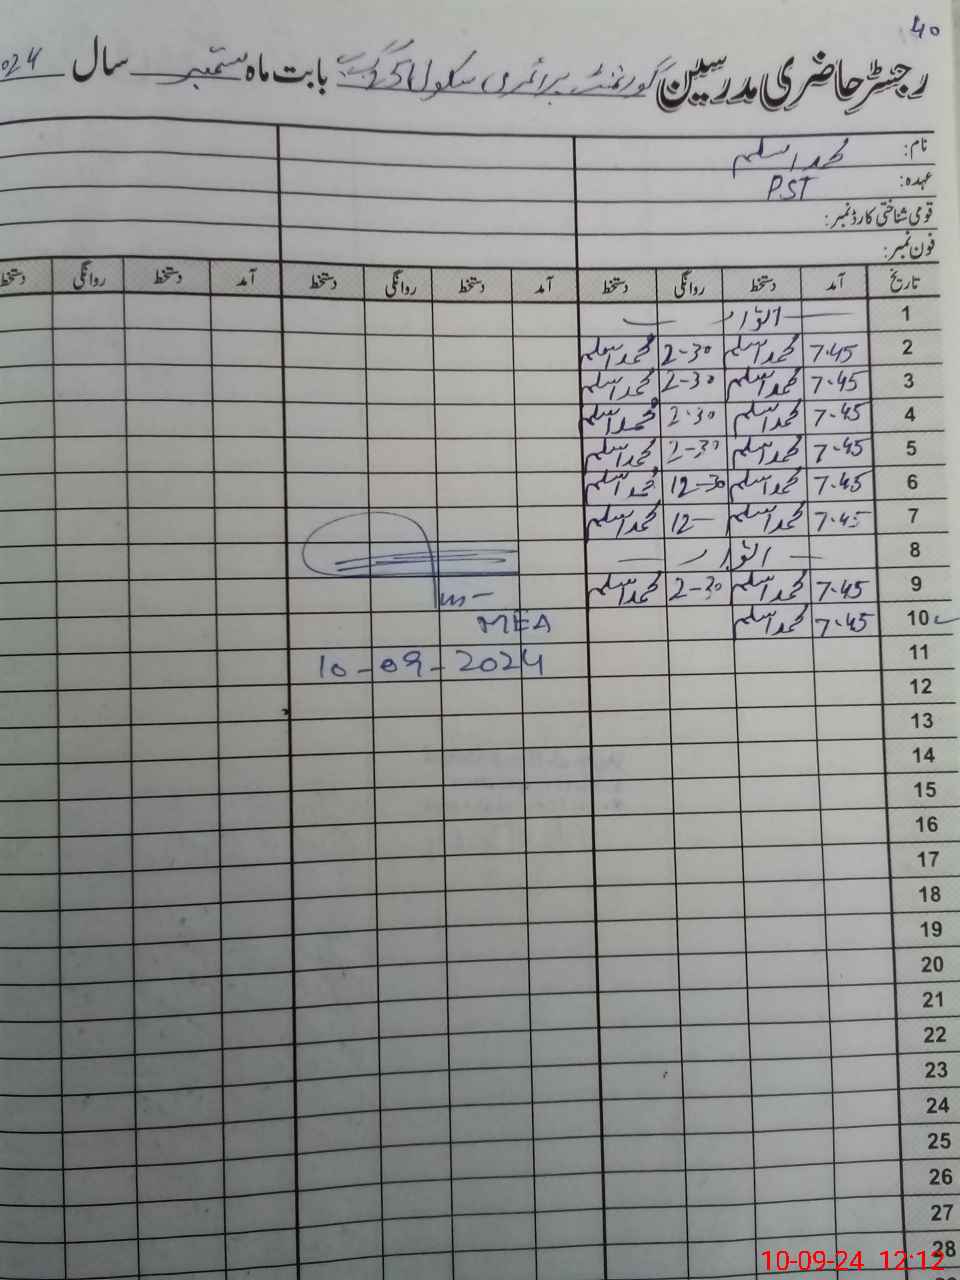 40
رجسٹر حاضری مدرسین گورنمنٹ پرائمری سکول بابت ماہ ستمبر سال 2024
نام: محمد اسلم
عہدہ: PST
قومی شناختی کارڈ نمبر:
فون نمبر:
تاریخ آمد دستخط روانگی دستخط آمد دستخط روانگی دستخط آمد دستخط روانگی دستخط
1 اتوار
2 7.45 محمد اسلم 2-30 محمد اسلم
3 7.45 محمد اسلم 2-30 محمد اسلم
4 7.45 محمد اسلم 2.30 محمد اسلم
5 7.45 محمد اسلم 2-30 محمد اسلم
6 7.45 محمد اسلم 12-30 محمد اسلم
7 7.45 محمد اسلم 12- محمد اسلم
8 اتوار
9 7.45 محمد اسلم 2-30 محمد اسلم
10 7.45 محمد اسلم
MEA
11
10-09-2024
12
13
14
15
16
17
18
19
20
21
22
23
24
25
26
27
28
10-09-24 12:12